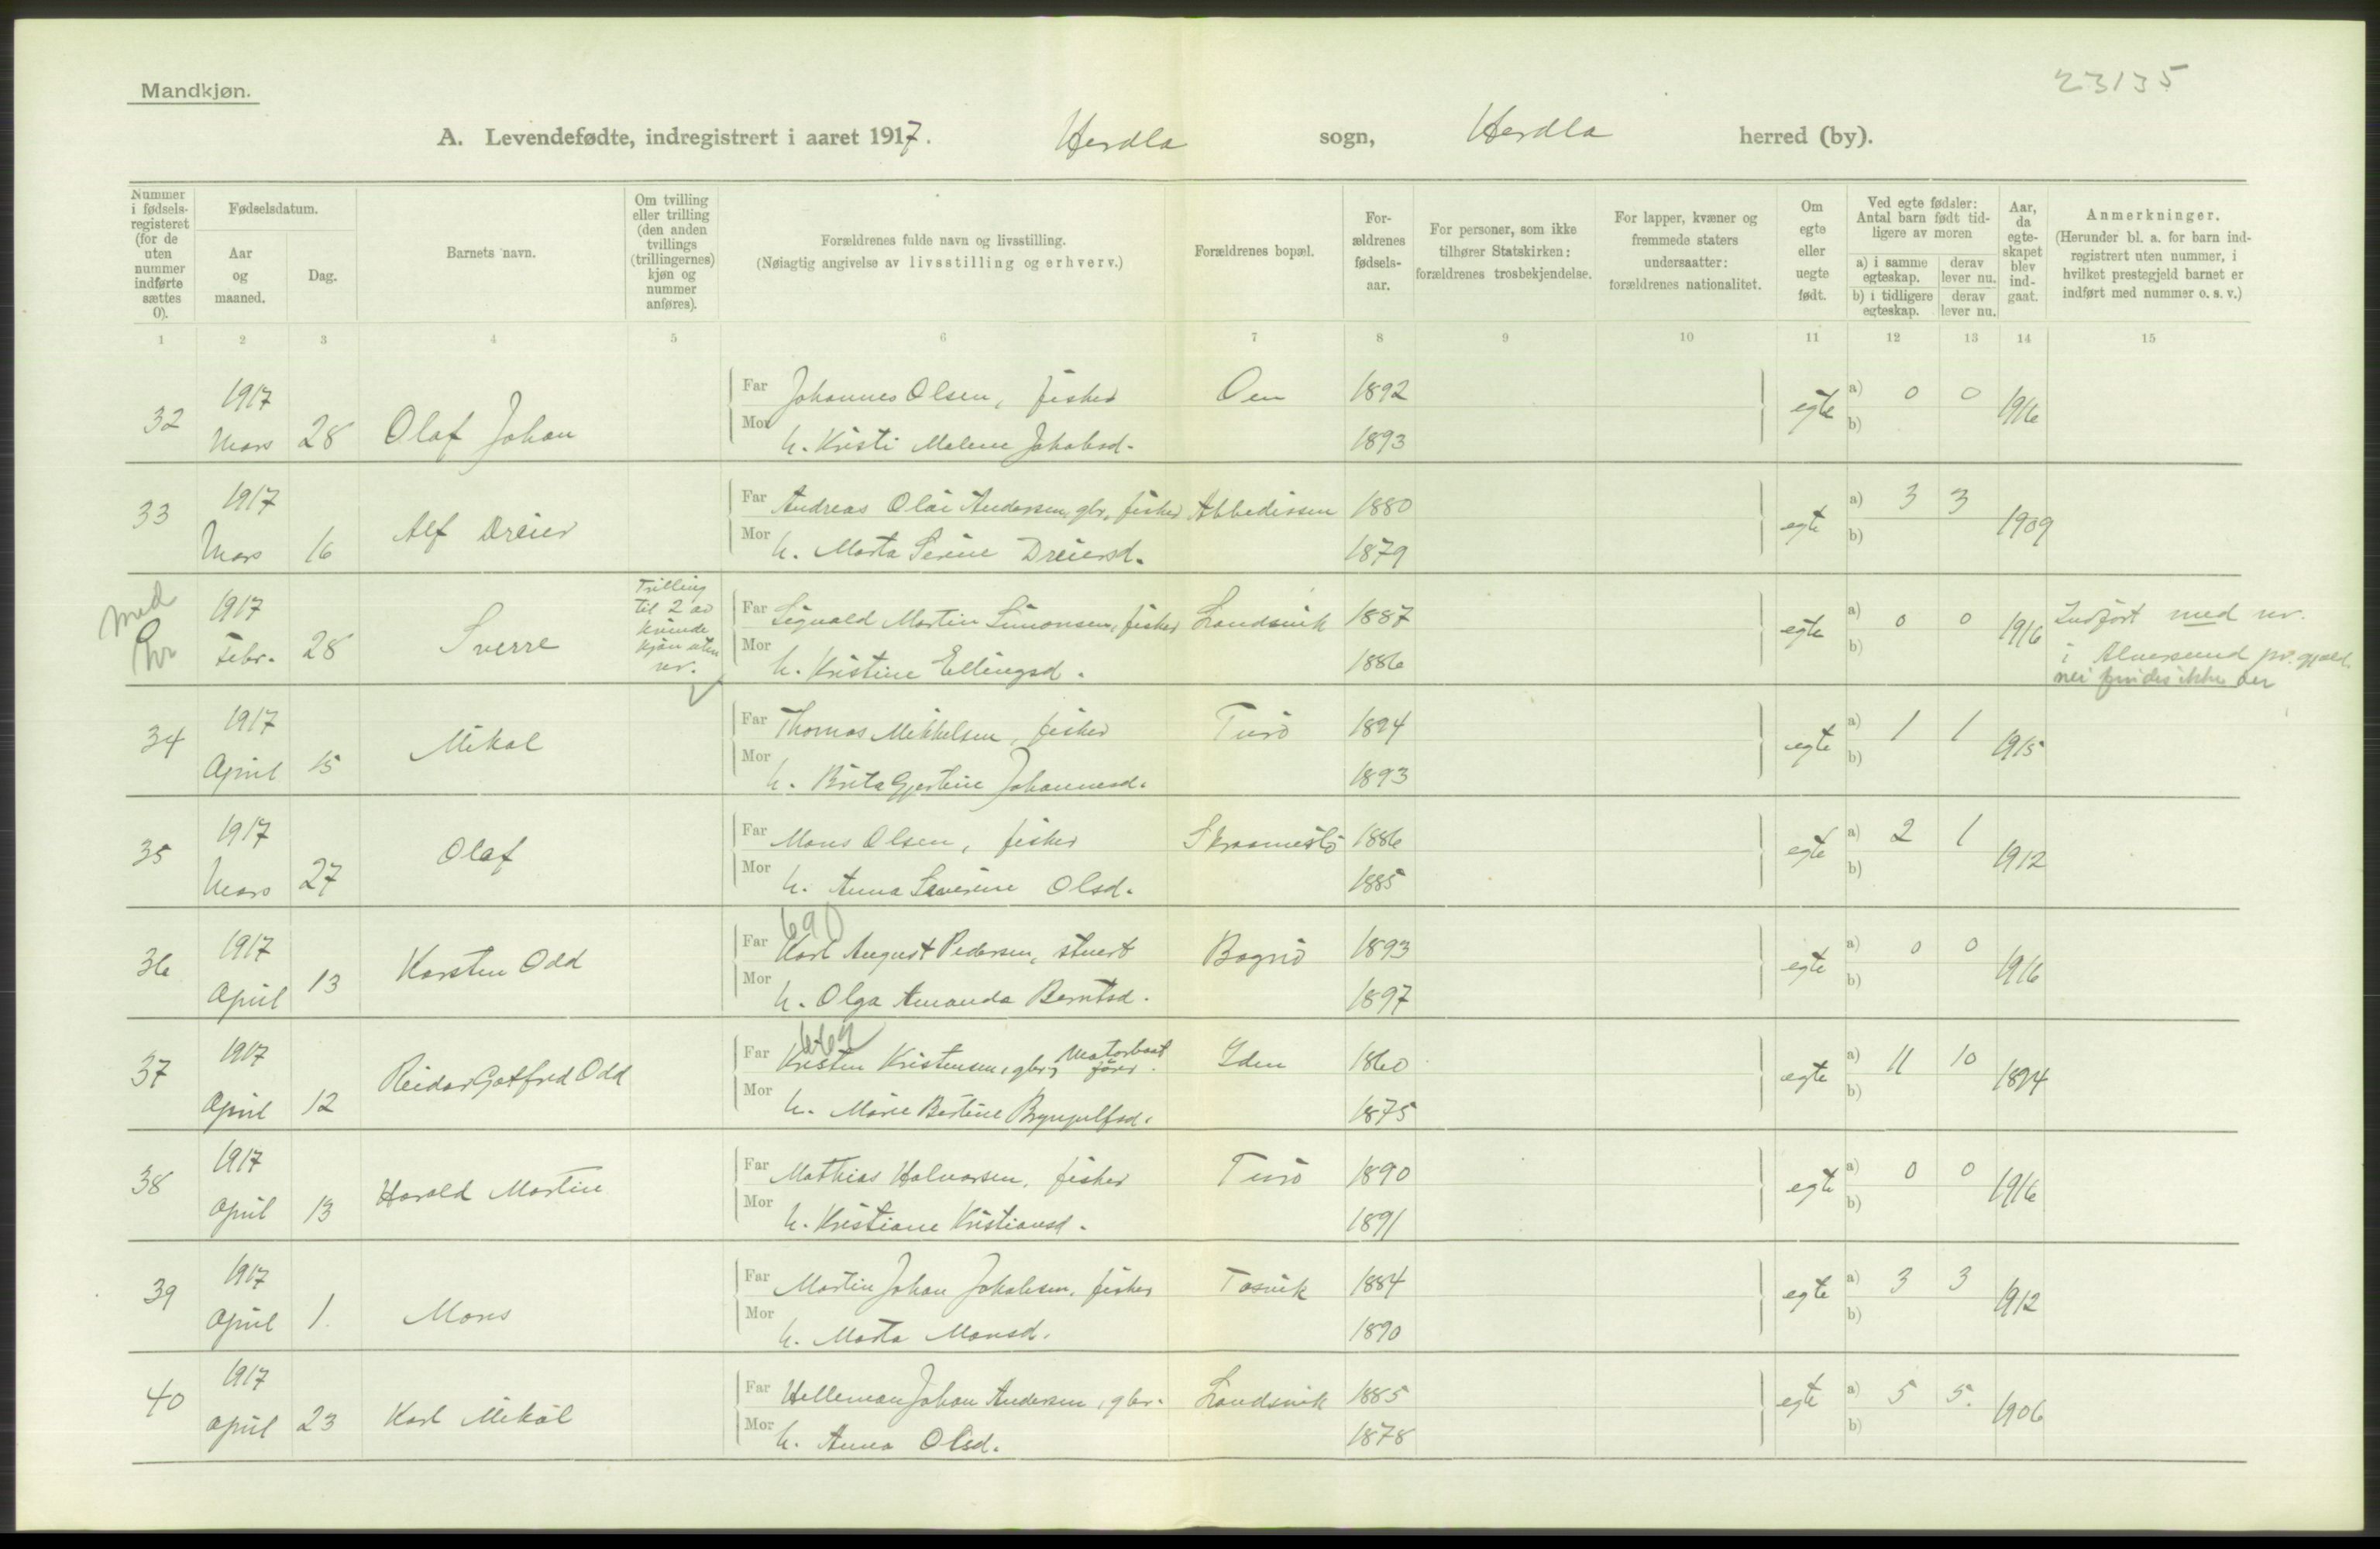 23135
Mandkjøn.
A. Levendefødte, indregistrert i aaret 1917. Herdla sogn, Herdla herred (by).
Nummer i fødsels-registeret (for de uten nummer indførte sættes 0).
Fødselsdatum.
Aar og maaned.
Dag.
Barnets navn.
Om tvilling eller trilling (den anden tvillings (trillingernes) kjøn og nummer anføres).
Forældrenes fulde navn og livsstilling.
(Nøiagtig angivelse av livsstilling og erhverv.)
Forældrenes bopæl.
For-ældrenes fødsels-aar.
For personer, som ikke tilhører Statskirken: forældrenes trosbekjendelse.
For lapper, kvæner og fremmede staters undersaatter: forældrenes nationalitet.
Om egte eller uegte født.
Ved egte fødsler: Antal barn født tid-ligere av moren
a) i samme egteskap. derav lever nu.
b) i tidligere egteskap. derav lever nu.
Aar, da egte-skapet blev ind-gaat.
Anmerkninger.
(Herunder bl. a. for barn ind-registrert uten nummer, i hvilket prestegjeld barnet er indført med nummer o. s. v.)
1 2 3 4 5 6 7 8 9 10 11 12 13 14 15
32 1917 Mars 28 Olaf Johan
Far Johannes Olsen, fisker Oen 1892 egte a) 0 0 1916
Mor h. Kristi Malene Jakobsd. 1893 b)
33 1917 Mars 16 Alf Dreier
Far Andreas Olai Andersen, gbr, fisker Abbedissen 1880 egte a) 3 3 1909
Mor h. Marta Serine Dreiersd. 1879 b)
med
1917 Febr. 28 Sverre
Trilling
til 2 av
kvinde
kjøn uten
nr.
Far Sigvald Martin Simonsen, fisker Landsvik 1887 egte a) 0 0 1916
Mor h. Kristine Ellingsd. 1886 b)
Indført med nr.
i Alversund pr.gjeld.
nei findes ikke der
34 1917 April 15 Mikal
Far Thomas Mikkelsen, fisker Turø 1894 egte a) 1 1 1915
Mor h. Brita Gjertine Johannesd. 1893 b)
35 1917 Mars 27 Olaf
Far Mons Olsen, fisker 1886 egte a) 2 1 1912
Mor h. Anna Severine Olsd. 1885 b)
690
36 1917 April 13 Karsten Odd
Far Karl August Pedersen, stuert Bognø 1893 egte a) 0 0 1916
Mor h. Olga Amanda Berntsd. 1897 b)
37 1917 April 12 Reidar Gotfred Odd
Far Kristen Kristensen, gbr, Motorbaat fører. Iden 1860 egte a) 11 10 1894
Mor h. Marie Bertine Brynjulfsd. 1875 b)
38 1917 April 13 Harald Martin
Far Mathias Halvorsen, fisker Turø 1890 egte a) 0 0 1916
Mor h. Kristiane Kristiansd. 1891 b)
39 1917 April 1. Mons
Far Martin Johan Jakobsen, fisker Tosvik 1884 egte a) 3 3 1912
Mor h. Marta Monsd. 1890 b)
40 1917 April 23 Karl Mikal
Far Helleman Johan Andersen, gbr. Landsvik 1885 egte a) 5 5. 1906
Mor h. Anna Olsd. 1878 b)